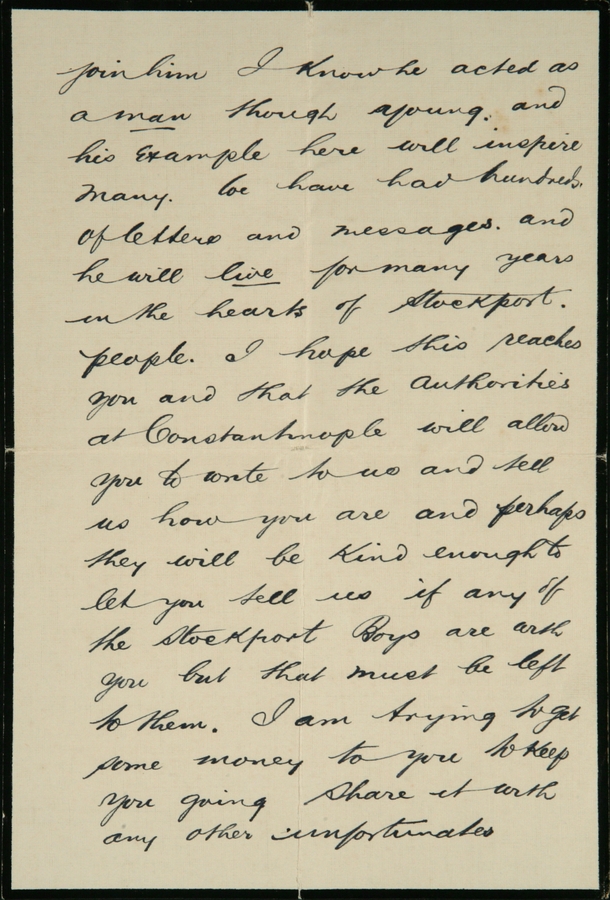 join him I know he acted as
a man though a young. and
his Example here will inspire
many. We have had hundreds.
of letters and messages. and
he will live for many years
in the hearts of Stockport.
people. I hope this reaches
you and that the Authorities
at Constantinople will allow
you to write to us and tell
us how you are and perhaps
they will be Kind enough to
let you tell us if any of
the Stockport Boys are with
you but that must be left
to them. I am trying to get
some money to you to Keep
you going share it with
any other unfortunates